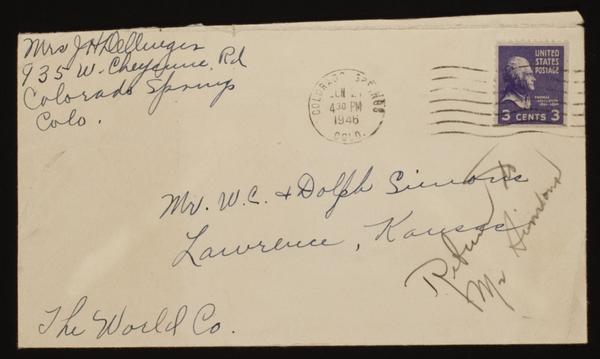 Mrs J H Dellinger
935 W. Cheyenne Rd
Colorado Springs
Colo.
COLORADO SPRINGS
JUN 21
4 30 PM
1946
COLO.
UNITED
STATES
POSTAGE
THOMAS
JEFFERSON
3 CENTS 3
Mr. W.C. & Dolph Simons
Lawrence, Kansas
Return to
Mr Simons
The World Co.